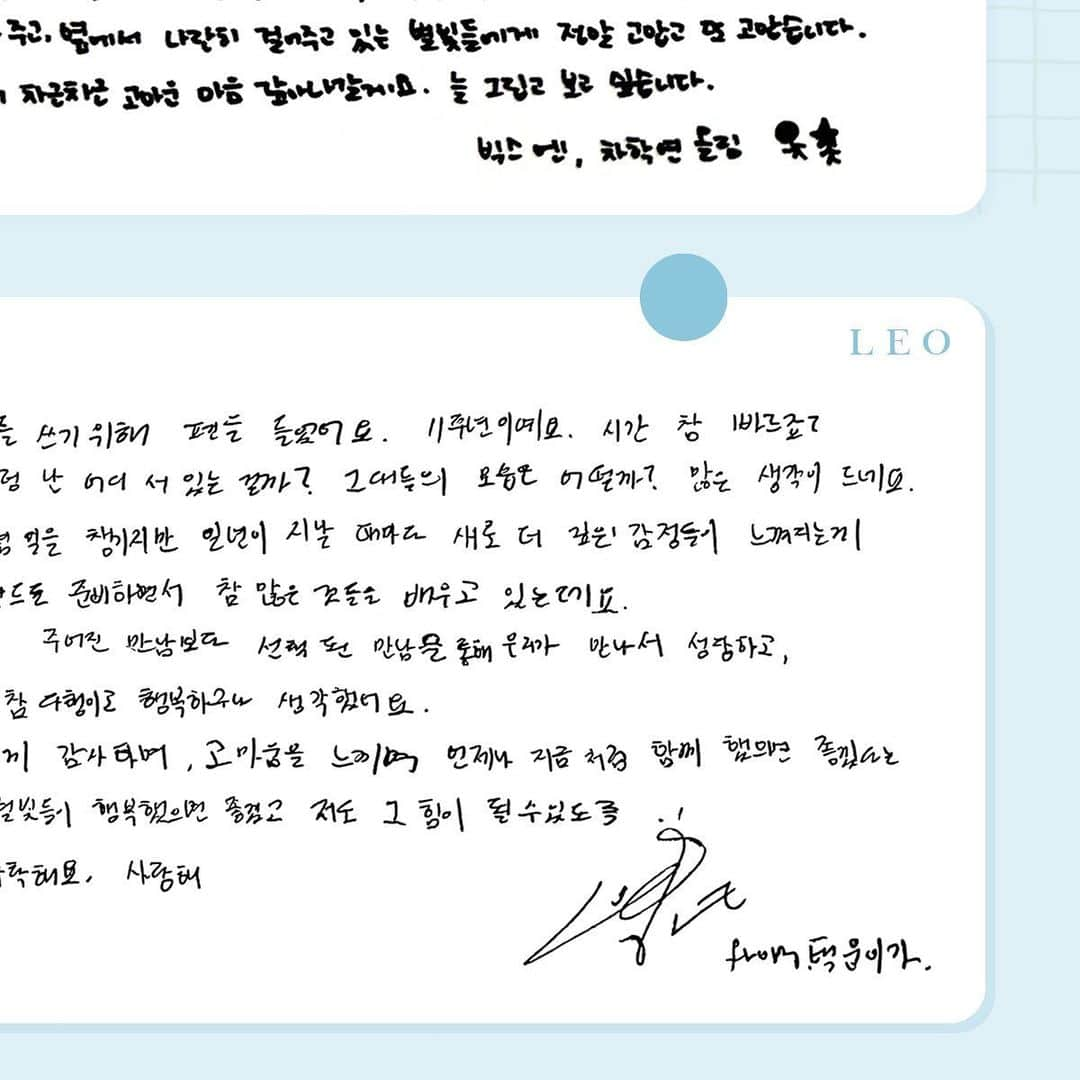 주고, 옆에서 나란히 걸어주고 있는 별빛들에게 정말 고맙고 또 고맙습니다.
차근차근 고마운 마음 갚아나갈게요. 늘 그립고 보고 싶습니다.
빅스 엔, 차학연 올림
LEO
를 쓰기 위해 펜을 들었어요. 11주년이예요. 시간 참 빠르죠?
난 어디 서 있는 걸까? 그대들의 모습은 어떨까? 많은 생각이 드네요.
일을 챙기지만 일년이 지날 때마다 새로 더 깊은 감정들이 느껴지는게
준비하면서 참 많은 것들을 배우고 있는데요.
주어진 만남보다 선택 된 만남을 통해 우리가 만나서 성장하고,
참 다행이고 행복하구나 생각했어요.
감사하며, 고마움을 느끼며 언제나 지금처럼 함께 했으면 좋겠다는
별빛들이 행복했으면 좋겠고 저도 그 힘이 될 수 있도록
사랑해
from. 택운이가.